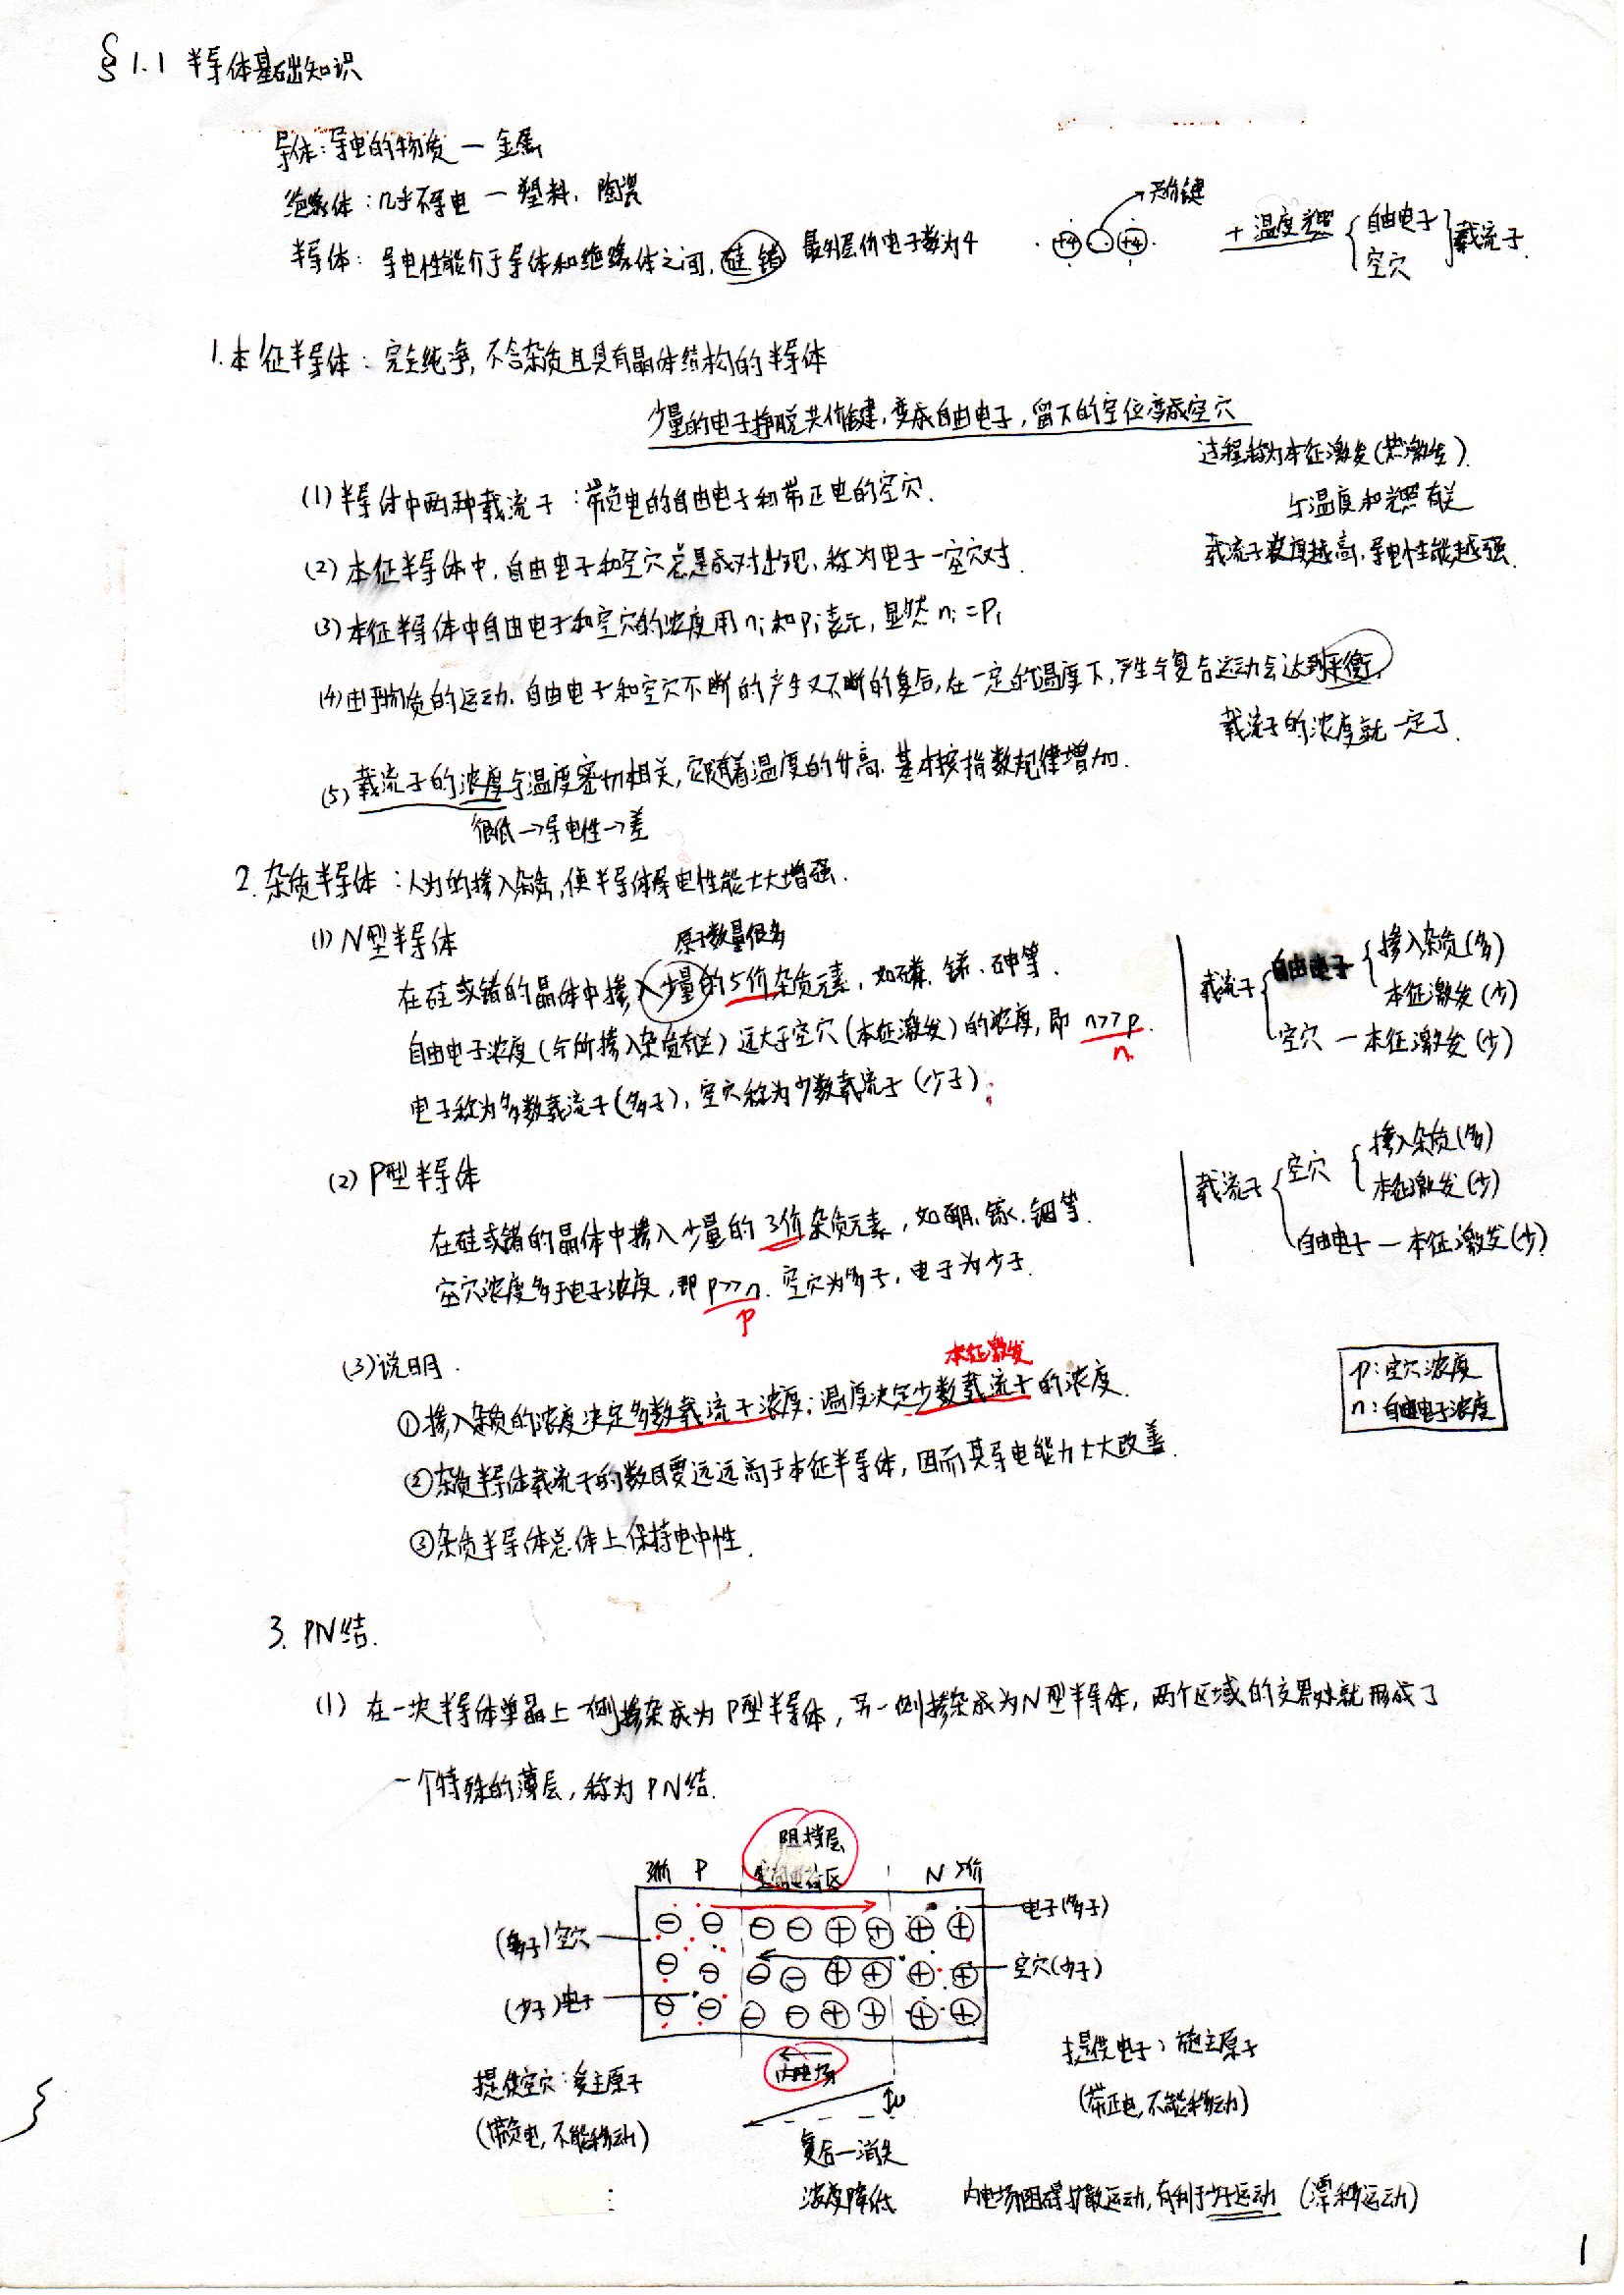 §1.1 半导体基础知识
导体：导电的物质 — 金属
绝缘体：几乎不导电 — 塑料、陶瓷
半导体：导电性能介于导体和绝缘体之间，硅 锗 最外层价电子数为4
+4 +4 共价键
+温度光照 { 自由电子 空穴 } 载流子.
1.本征半导体：完全纯净，不含杂质且具有晶体结构的半导体
少量的电子挣脱共价键，变成自由电子，留下的空位变成空穴
过程称为本征激发(热激发).
与温度和光照有关
载流子浓度越高，导电性能越强.
(1) 半导体中两种载流子：带负电的自由电子和带正电的空穴.
(2) 本征半导体中，自由电子和空穴总是成对出现，称为电子—空穴对.
(3) 本征半导体中自由电子和空穴的浓度用ni和pi表示，显然 ni=Pi
(4) 由于物质的运动，自由电子和空穴不断的产生又不断的复合，在一定的温度下，产生与复合运动会达到平衡，
载流子的浓度就一定了.
(5) 载流子的浓度与温度密切相关，它随着温度的升高，基本按指数规律增加.
很低→导电性→差
2.杂质半导体：人为的掺入杂质，使半导体导电性能大大增强.
(1) N型半导体
原子数量很多
在硅或锗的晶体中掺入少量的5价杂质元素，如磷、锑、砷等.
自由电子浓度(与所掺入杂质有关)远大于空穴(本征激发)的浓度，即 n>>p.
n
电子称为多数载流子(多子)，空穴称为少数载流子(少子)；
载流子 { 自由电子 { 掺入杂质(多)
本征激发(少)
空穴 — 本征激发(少)
(2) P型半导体
在硅或锗的晶体中掺入少量的3价杂质元素，如硼、镓、铟等.
空穴浓度多于电子浓度，即 p>>n. 空穴为多子，电子为少子.
p
载流子 { 空穴 { 掺入杂质(多)
本征激发(少)
自由电子 — 本征激发(少)
(3)说明.
本征激发
①掺入杂质的浓度决定多数载流子浓度；温度决定少数载流子的浓度.
②杂质半导体载流子的数目要远远高于本征半导体，因而其导电能力大大改善.
③杂质半导体总体上保持电中性.
p：空穴浓度
n：自由电子浓度
3. PN结.
(1) 在一块半导体单晶上一侧掺杂成为P型半导体，另一侧掺杂成为N型半导体，两个区域的交界处就形成了
一个特殊的薄层，称为PN结.
阻挡层
3价 P 空间电荷区 N 5价
(多子)空穴
电子(多子)
(少子)电子
空穴(少子)
内电场
提供空穴：受主原子
(带负电，不能移动)
提供电子：施主原子
(带正电，不能移动)
复合—消失
浓度降低
内电场阻碍扩散运动，有利于少子运动 (漂移运动)
1